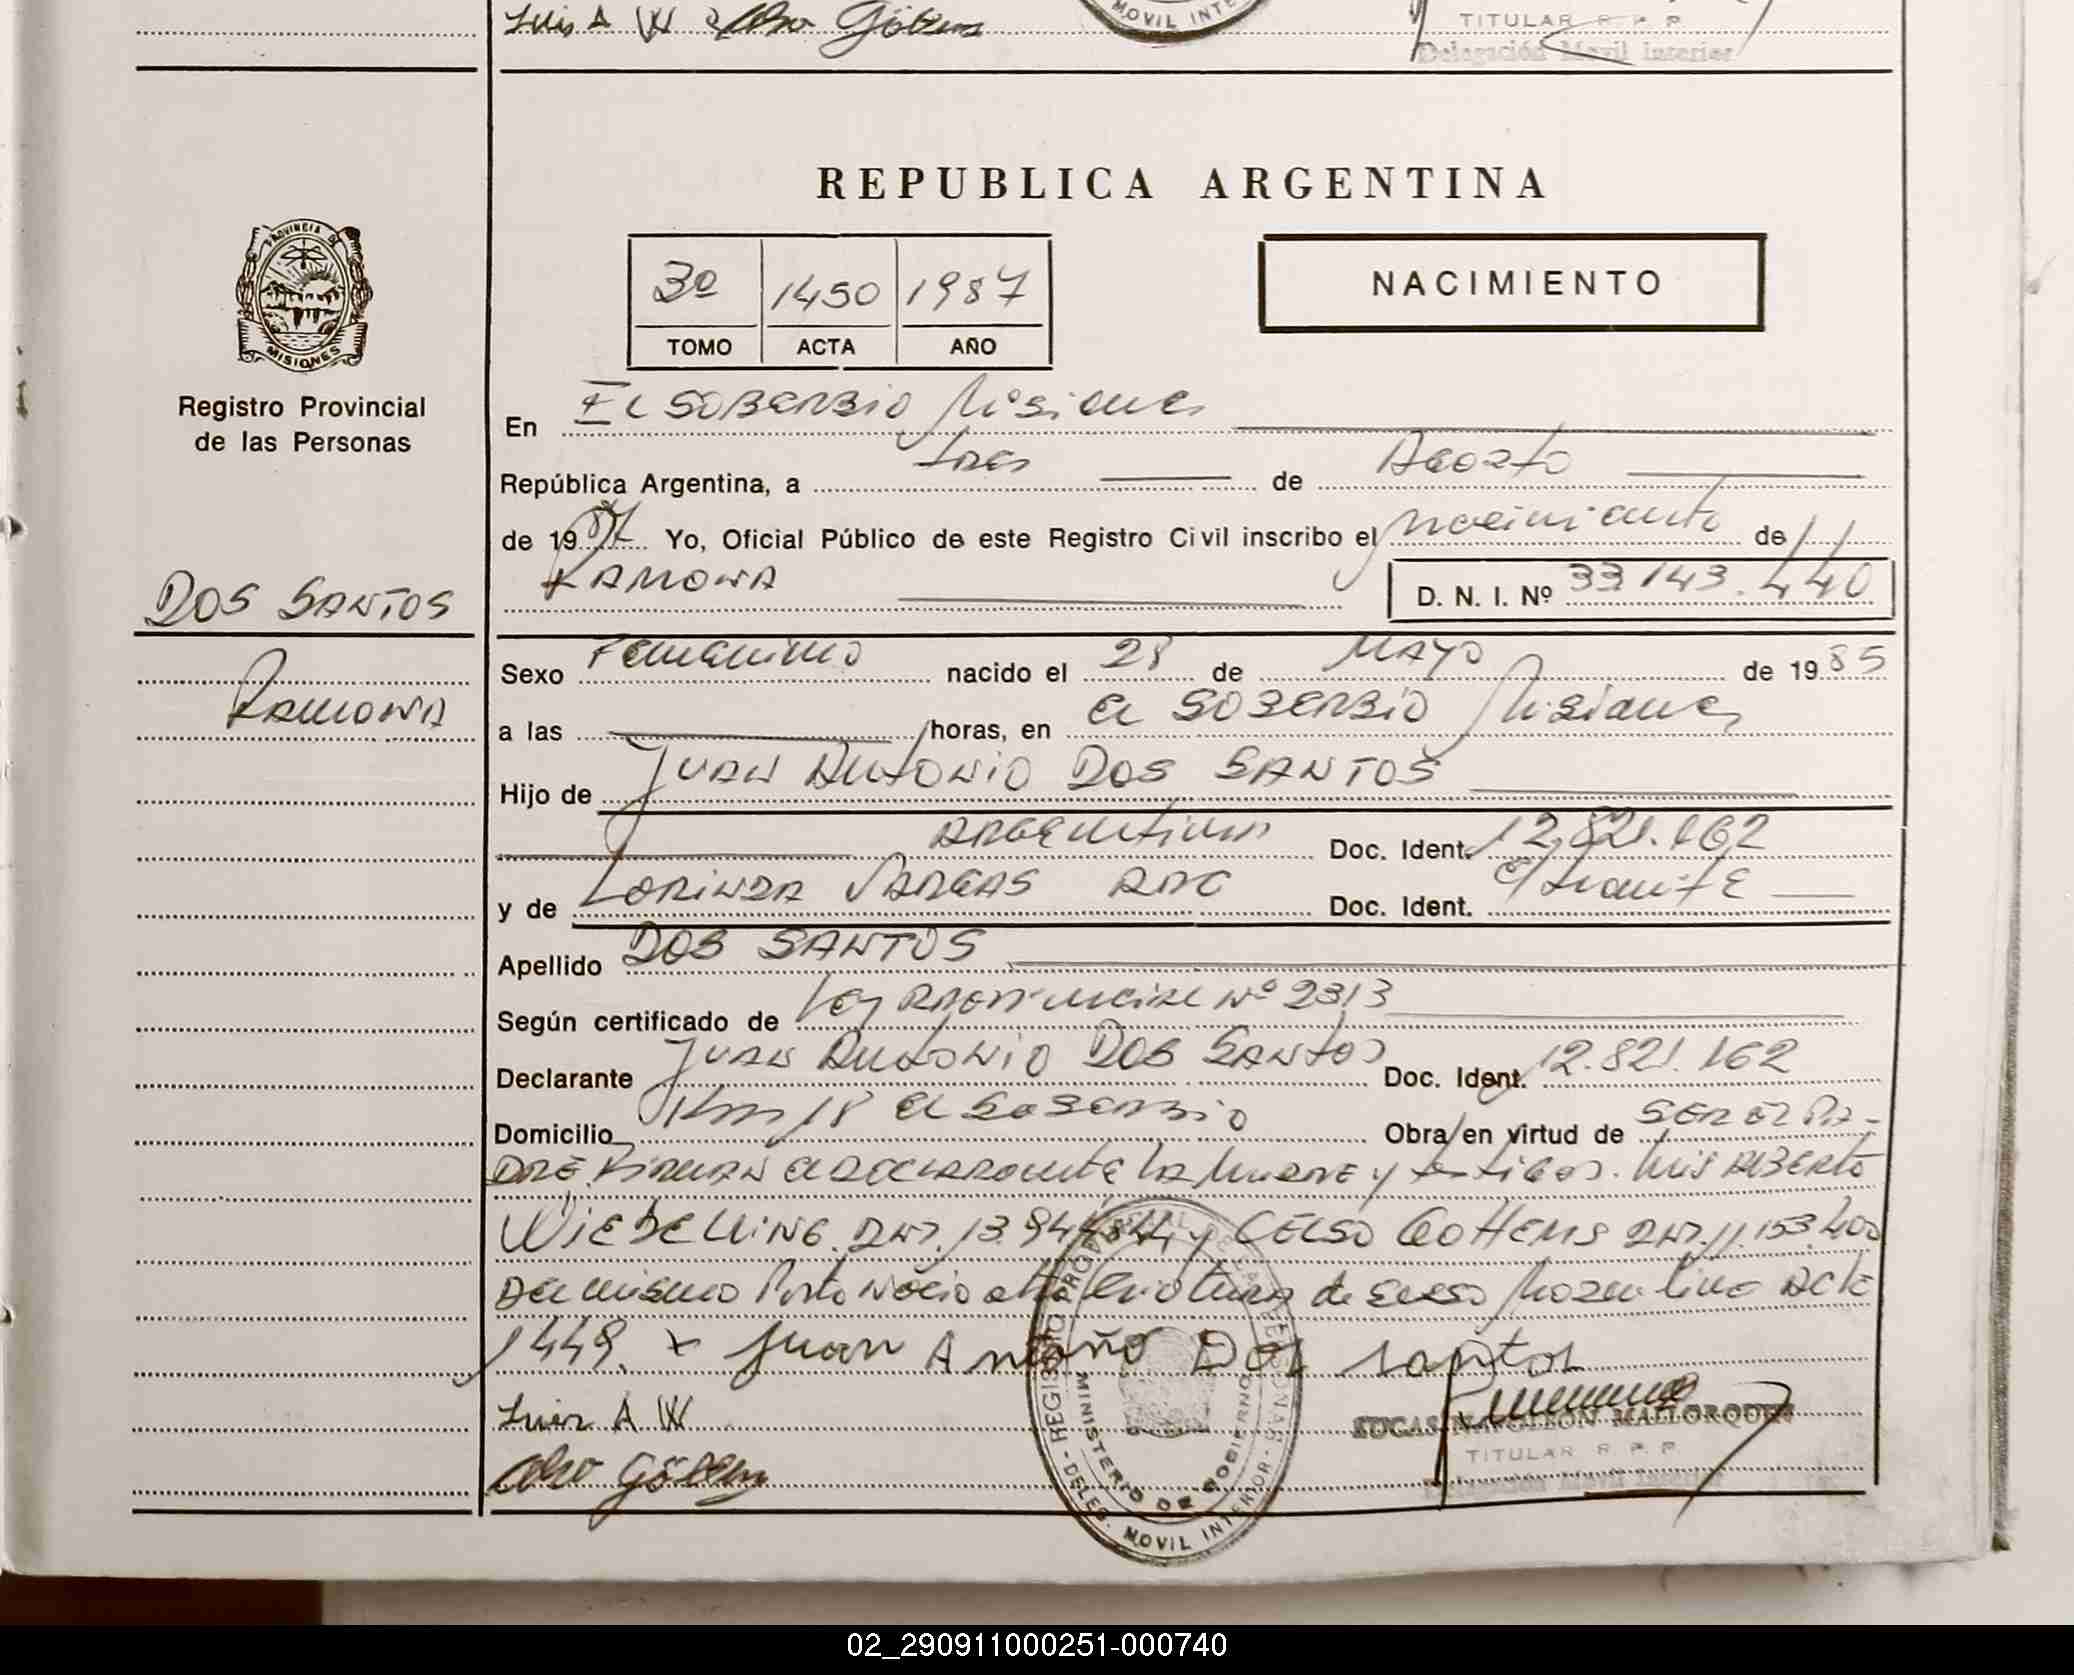 Luis A W
TITULAR R. P. P.
Delegación Movil Interior
MOVIL INTE
REPUBLICA ARGENTINA
PROVINCIA DE
MISIONES
Registro Provincial
de las Personas
3º 1450 1987
TOMO ACTA AÑO
NACIMIENTO
En El SOBERBIO Misiones
República Argentina, a tres de Agosto
de 1987 Yo, Oficial Público de este Registro Civil inscribo el nacimiento de
RAMONA D. N. I. Nº 33.143.440
DOS SANTOS
RAMONA
Sexo Femenino nacido el 28 de MAYO de 1985
a las horas, en El SOBERBIO Misiones
Hijo de JUAN ANTONIO DOS SANTOS
ARGENTINA Doc. Ident. 12.821.162
y de LORINDA VARGAS ARG Doc. Ident. e/tramite
Apellido DOS SANTOS
Según certificado de Ley PROVINCIAL Nº 2313
Declarante JUAN ANTONIO DOS SANTOS Doc. Ident. 12.821.162
Domicilio Km 18 El SOBERBIO Obra en virtud de SER EL PA-
DRE FIRMAN el DECLARANTE LA MADRE y testigos. LUIS ALBERTO
DNI. y CELSO DNI. 11.153.400
DEL mismo Parto Nacio otra criatura de sexo Masculino Acta
1449. x Juan Antoño Dos santos
Luis A W
REGISTRO PROVINCIAL DE LAS PERSONAS - DELEG. MOVIL INTERIOR -
MINISTERIO DE GOBIERNO
NAPOLEON MALLORQUIN
TITULAR R. P. P.
Delegación Movil Interior
02_290911000251-000740